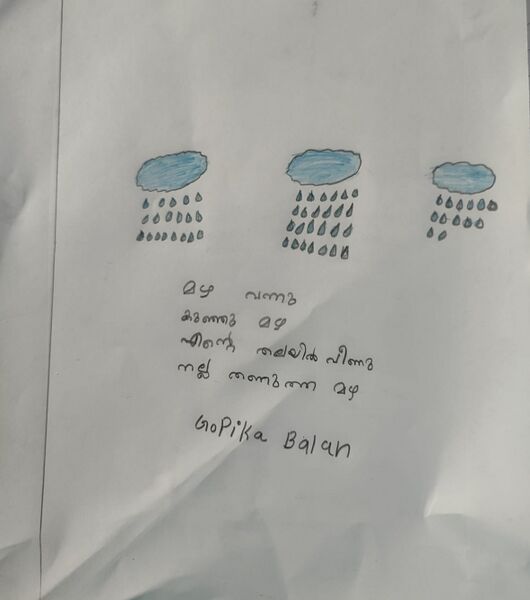 മഴ വന്നു
കുഞ്ഞു മഴ
എൻ്റെ തലയിൽ വീണു
നല്ല തണുത്ത മഴ
GoPika Balan